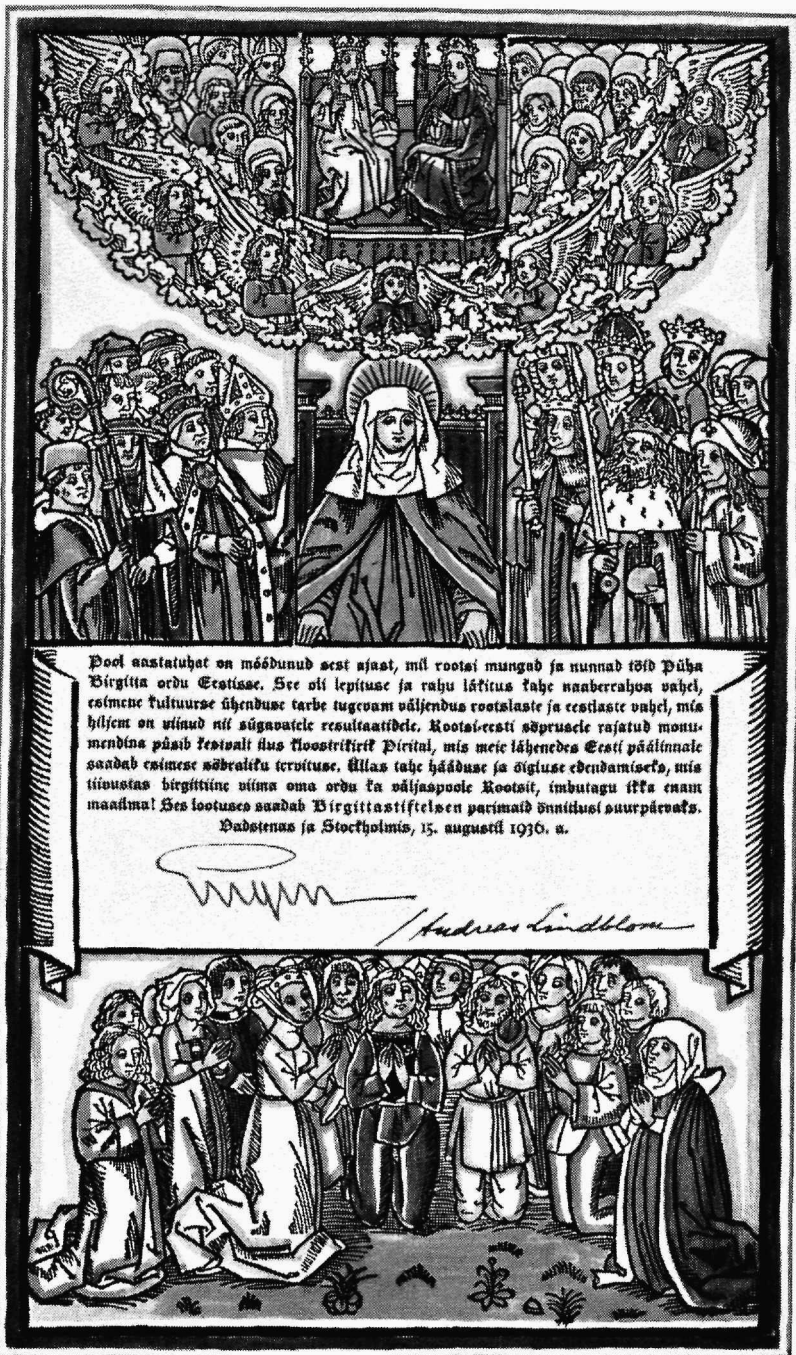 Pool aastatuhat on möödunud sest ajast, mil rootsi mungad ja nunnad tõid Püha
Birgitta ordu Eestisse. See oli lepituse ja rahu läkitus kahe naaberrahva vahel,
esimene kultuurse ühenduse tarbe tugevam väljendus rootslaste ja eestlaste vahel, mis
hiljem on viinud nii sügavatele resultaatidele. Rootsi-eesti sõprusele rajatud monu-
mendina püsib kestvalt ilus kloostrikirik Pirital, mis meie lähenedes Eesti päälinnale
saadab esimese sõbraliku tervituse. Üllas tahe hääduse ja õigluse edendamiseks, mis
tiivustas birgittiine viima oma ordu ka väljaspoole Rootsit, imbutagu ikka enam
maailma! Ses lootuses saadab Birgittastiftelsen parimaid õnnitlusi suurpäevaks.
Vadstenas ja Stockholmis, 15. augustil 1936. a.
Andreas Lindblom